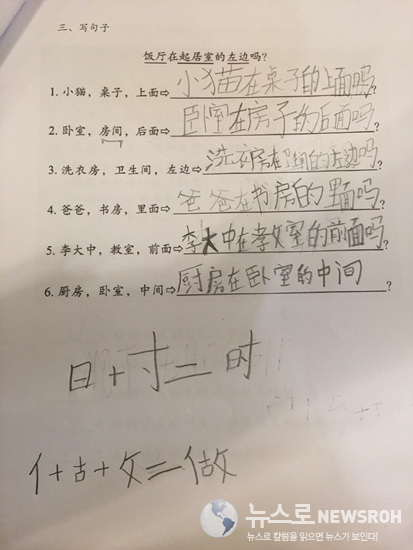 三、写句子
饭厅在起居室的左边吗？
1. 小猫，桌子，上面⇨小猫在桌子的上面吗？
2. 卧室，房间，后面⇨卧室在房子的后面吗？
3. 洗衣房，卫生间，左边⇨洗衣房在卫生间的左边吗？
4. 爸爸，书房，里面⇨爸爸在书房的里面吗？
5. 李大中，教室，前面⇨李大中在教室的前面吗？
6. 厨房，卧室，中间⇨厨房在卧室的中间？
日+寸=时
亻+古+攵=做
뉴스로 NEWSROH
뉴스로 칼럼을 읽으면 뉴스가 보인다!